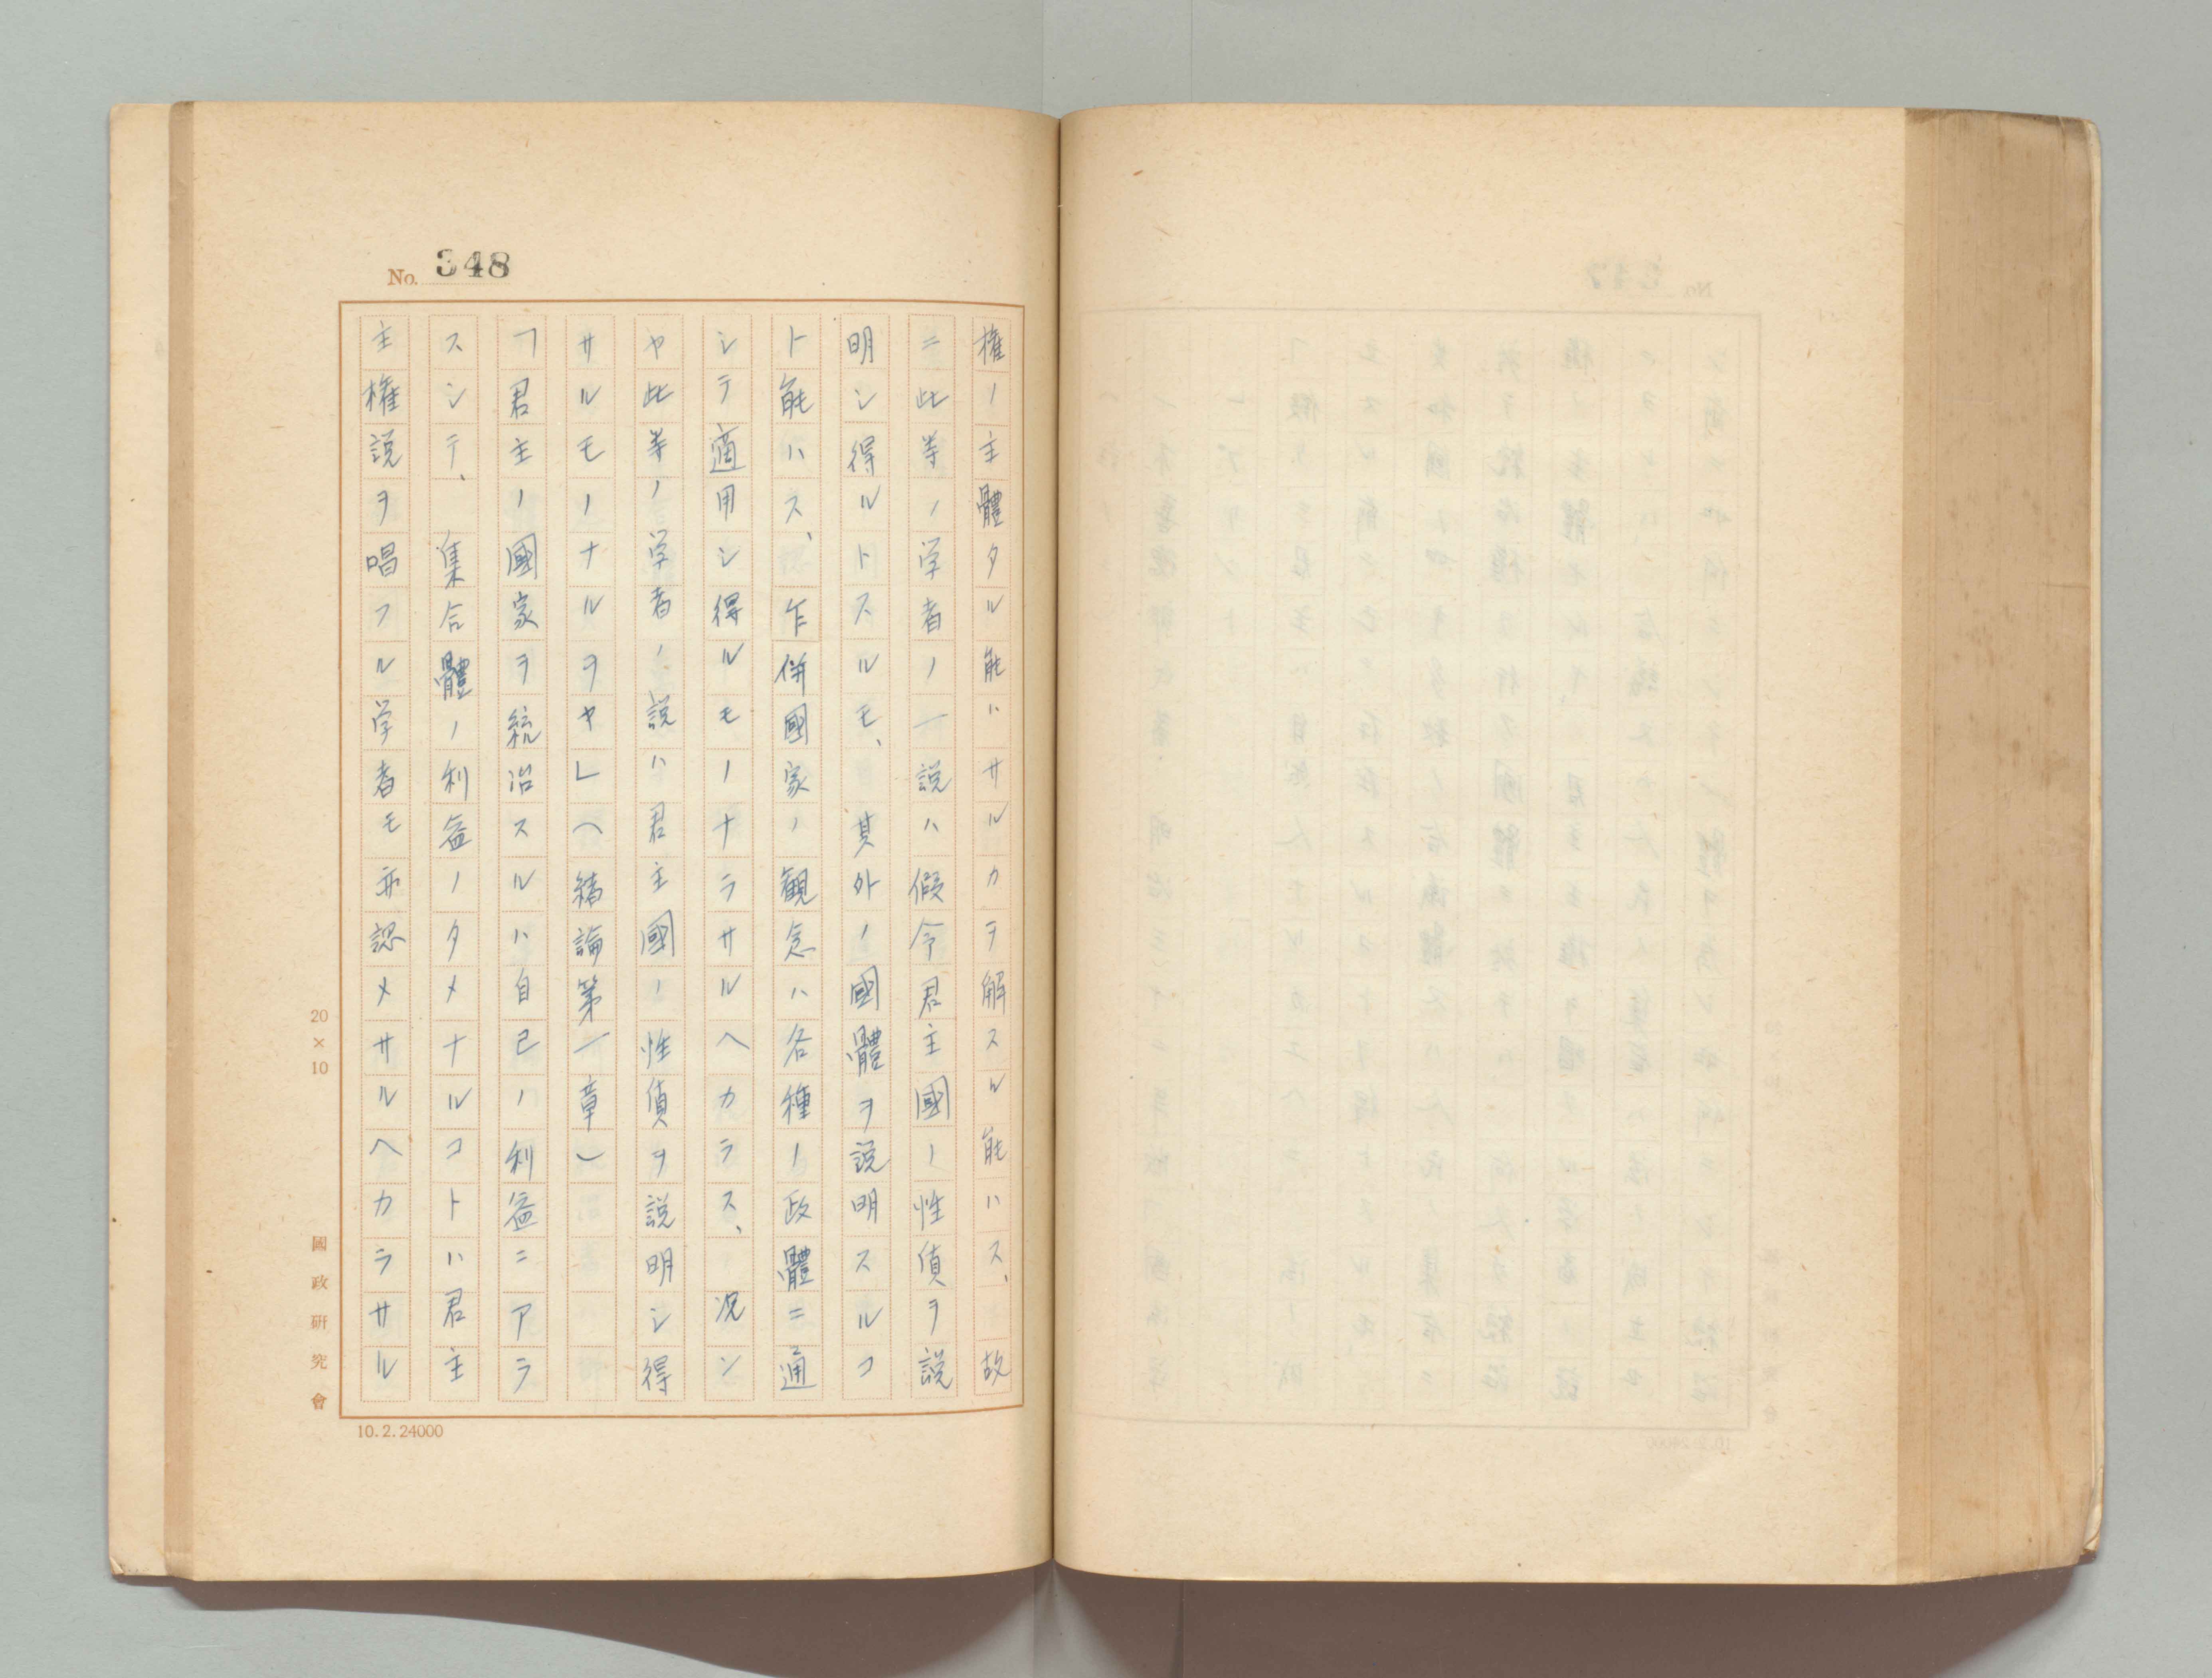 No. 348
権ノ主體タル能ハサルカヲ解スル能ハス、故
ニ此等ノ学者ノ一説ハ假令君主國ノ性質ヲ説
明シ得ルトスルモ、其外ノ國體ヲ説明スルコ
ト能ハス、乍併國家ノ観念ハ各種ノ政體ニ通
シテ適用シ得ルモノナラサルヘカラス、况ン
ヤ此等ノ学者ノ説ハ君主國ノ性質ヲ説明シ得
サルモノナルヲヤ」(緒論第一章)
「君主ノ國家ヲ統治スルハ自己ノ利益ニアラ
スシテ、集合體ノ利益ノタメナルコトハ君主
主権説ヲ唱フル学者モ亦認メサルヘカラサル
20×10
國政研究會
10.2.24000